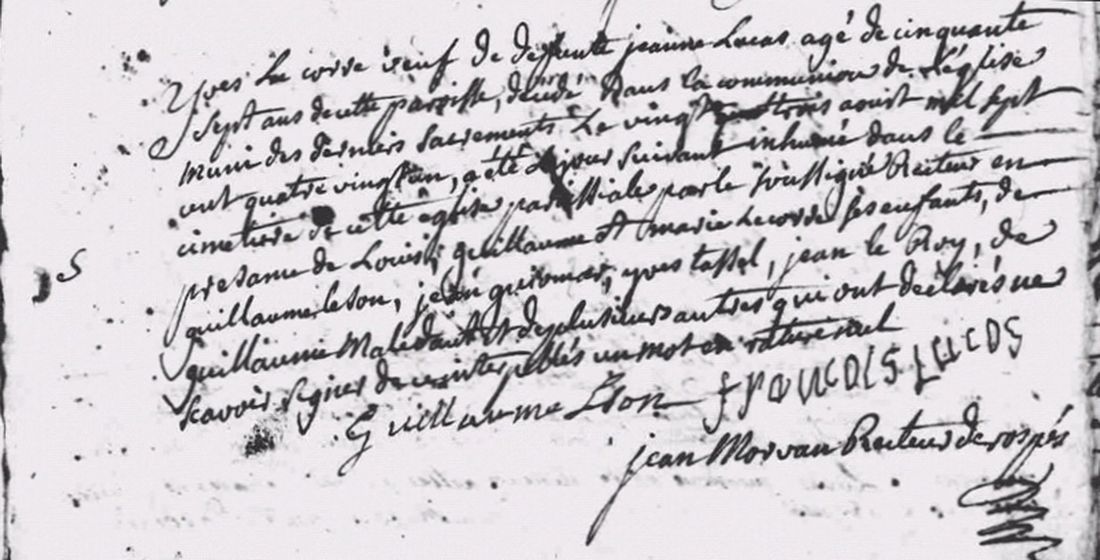 Yves Le corre veuf de defunte jeanne Lucas agé de cinquante
sept ans de cette paroisse, décédé dans la communion de L'église
muni des derniers sacrements Le vingt trois aoust mil sept
cent quatre vingt un, a été Le jour suivant inhumé dans le
cimetiere de cette eglise paroissiale par le soussigné Recteur en
presance de Louis, guillaume et marie Le corre ses enfants, de
guillaume Leson, jean guiomar, yves tassel, jean le Roy, de
guillaume Malédant et de plusieurs autres qui ont déclarés ne
scavoir signer de ce interpellés un mot en rature nul
Guillaume Lson francois Lucas
jean Morvan Recteur de rospés